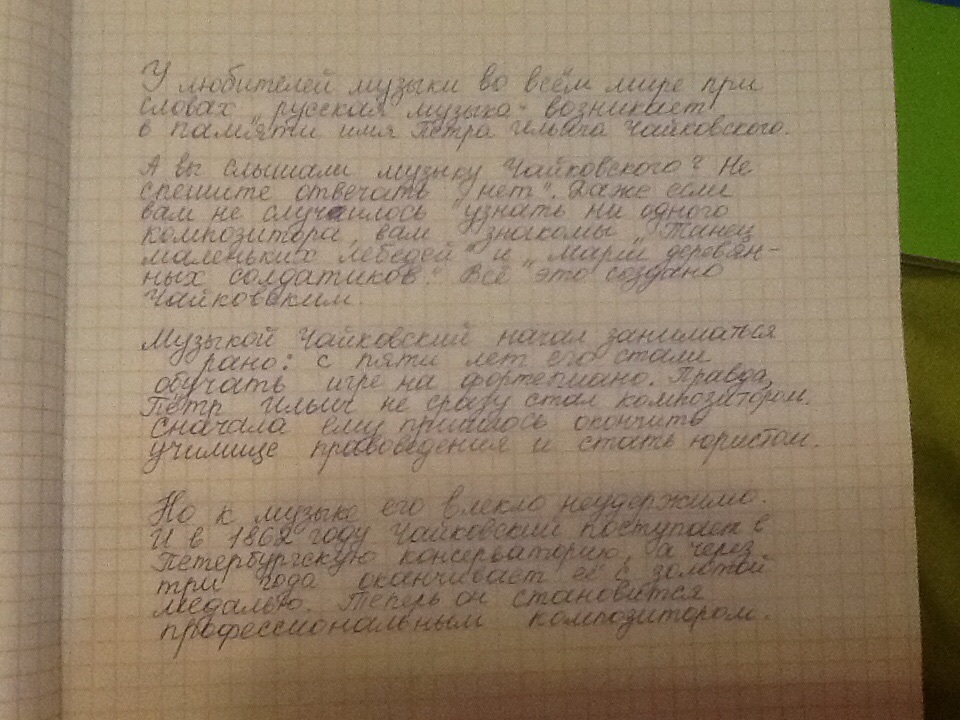 У любителей музыки во всём мире при
словах „русская музыка" возникает
в памяти имя Петра Ильича Чайковского.
А вы слышали музыку Чайковского? Не
спешите отвечать „нет". Даже если
вам не случаилось узнать ни одного
композитора, вам знакомы „Танец
маленьких лебедей" и „Марш деревян-
ных солдатиков." Всё это создано
Чайковским.
Музыкой Чайковский начал заниматься
рано: с пяти лет его стали
обучать игре на фортепиано. Правда,
Пётр Ильич не сразу стал композитором.
Сначала ему пришлось окончить
училище правоведения и стать юристом.
Но к музыке его влекло неудержимо.
И в 1862 году Чайковский поступает в
Петербургскую консерваторию, а через
три года оканчивает её с золотой
медалью. Теперь он становится
профессиональным композитором.